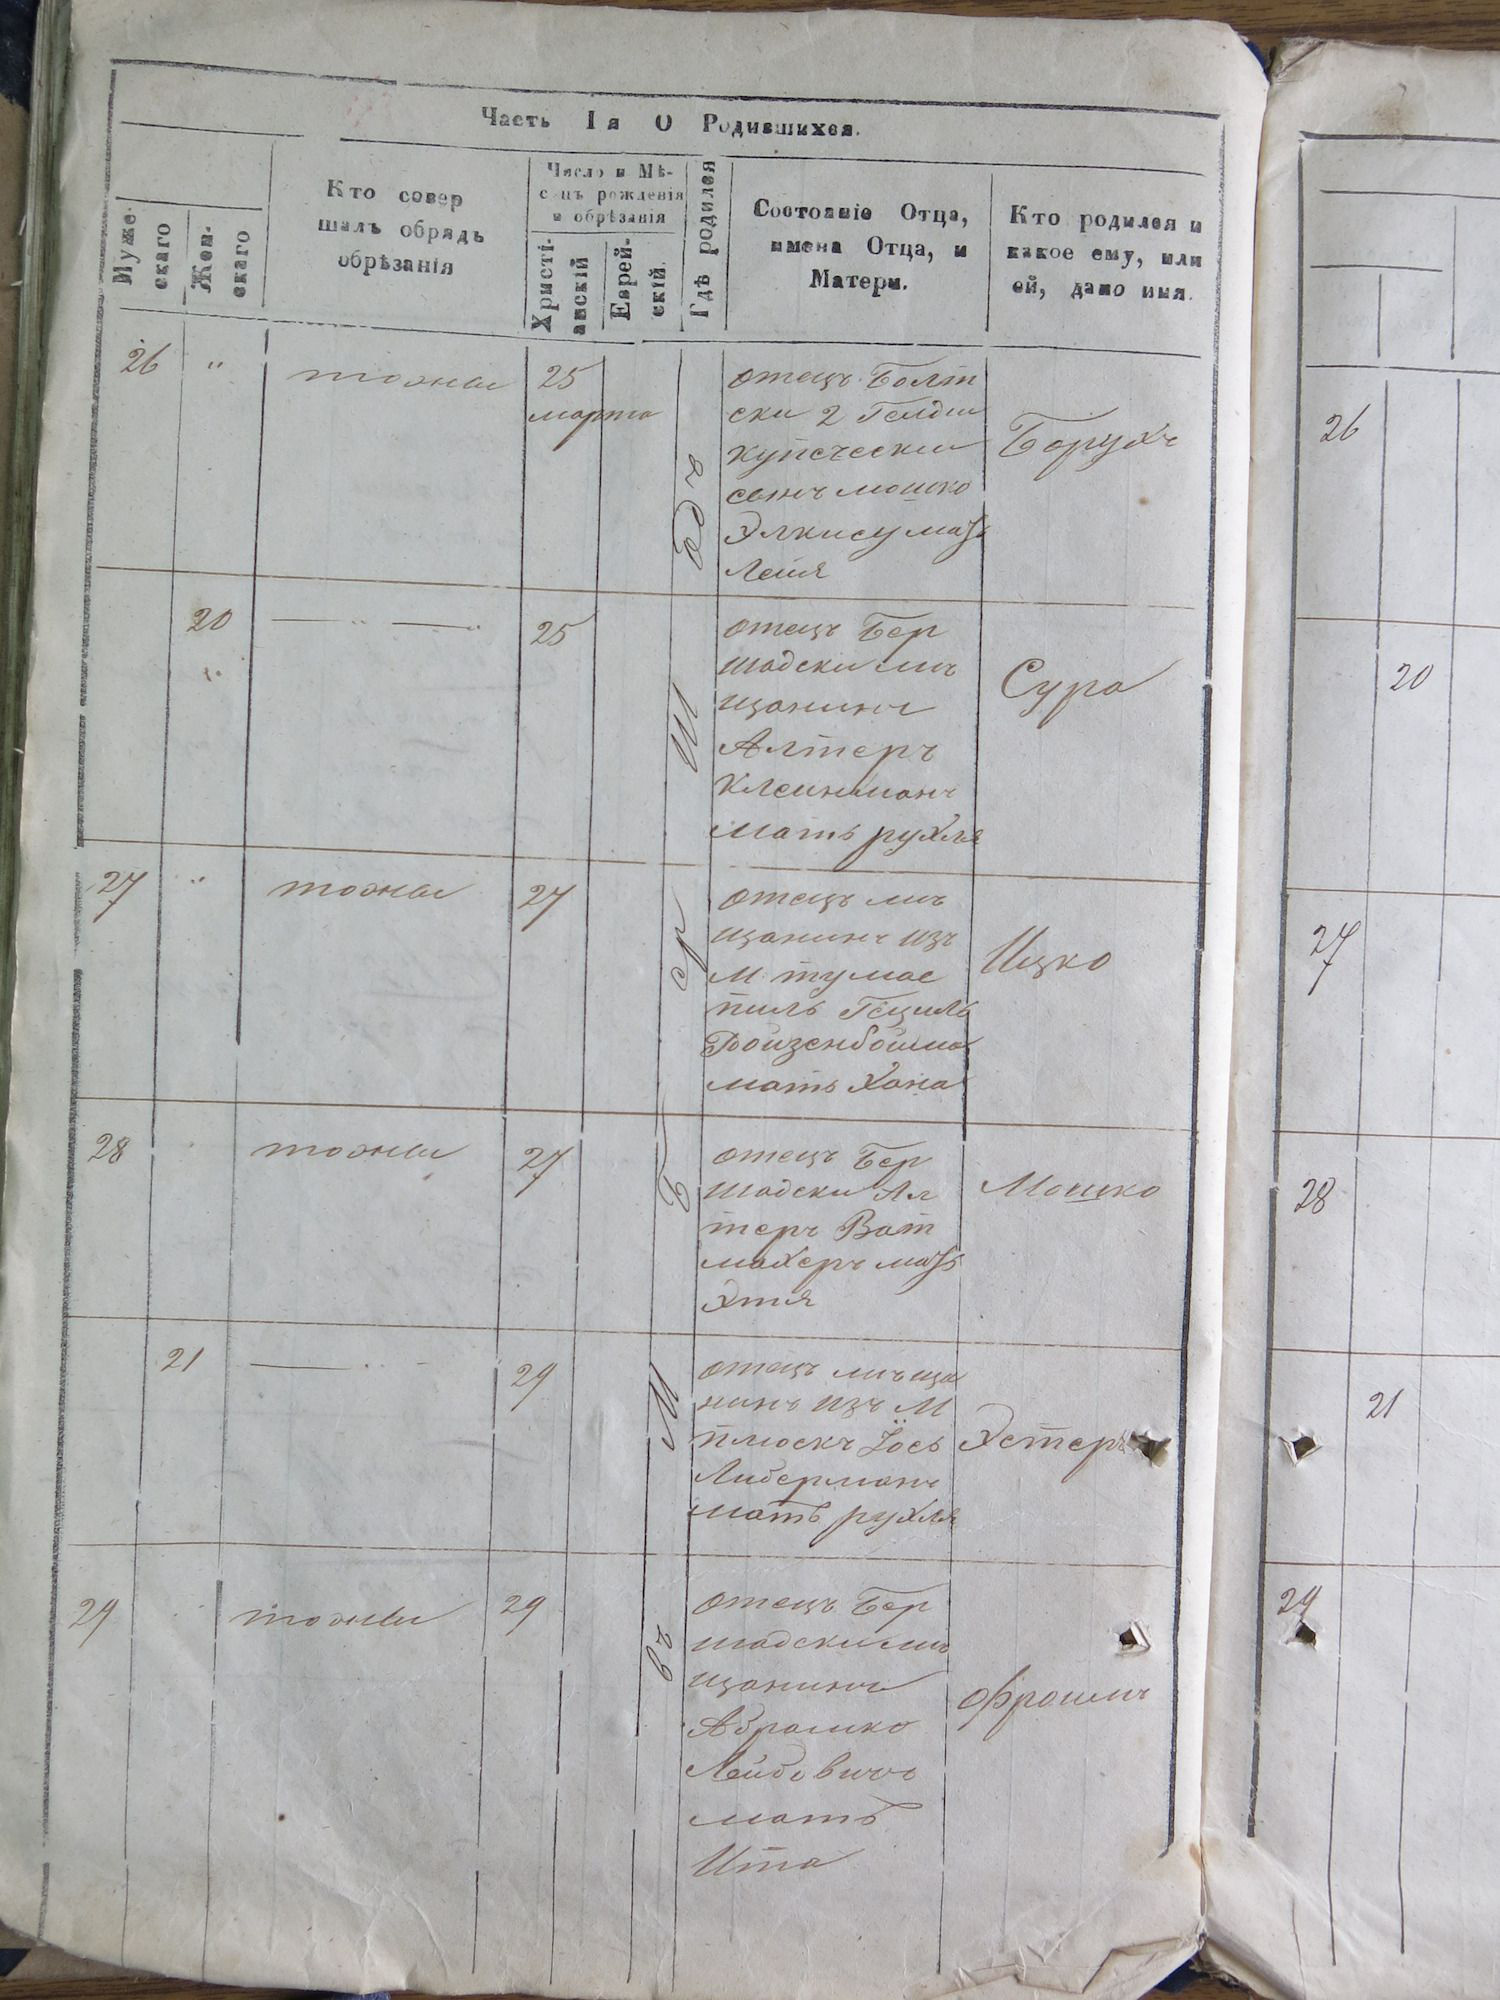 Часть Iя О Родившихся.
Мужескаго
Женскаго
Кто совер
шалъ обрядъ
обрѣзанія
Число и Мѣ-
сяцъ рожденія
и обрѣзанія
Христі-
анскій
Еврей-
скій.
Гдѣ родился
Состояніе Отца,
имена Отца, и
Матери.
Кто родился и
какое ему, или
ей, дано имя.
26 " тоже 25
марта
отецъ Болт
ски 2 Гелдии
купечески
сенъ мошко
Элкису мать
Лейя
Борухъ
20 — " — " 25
отецъ Бер
шадски мѣ
щанинъ
Алтеръ
Клеинманъ
мать рухля
Сура
27 " тоже 27
отецъ мѣ
щанинъ изъ
М тумае
пиль Гецилъ
мать Хана
Ицко
28 тоже 27
отецъ Бер
шадски Ал
теръ Ват
махеръ мать
Этя
Мошко
21 — 29
отецъ мѣща
нинъ изъ М
плюскъ Іось
Либерманъ
мать рухля
Эстеръ
29 тоже 29
отецъ Бер
шадски мѣ
щанинъ
Абрамко
Лейбовичъ
мать
Ита
Фроимъ
въ М Бер Ш адъ
26
20
27
28
21
29